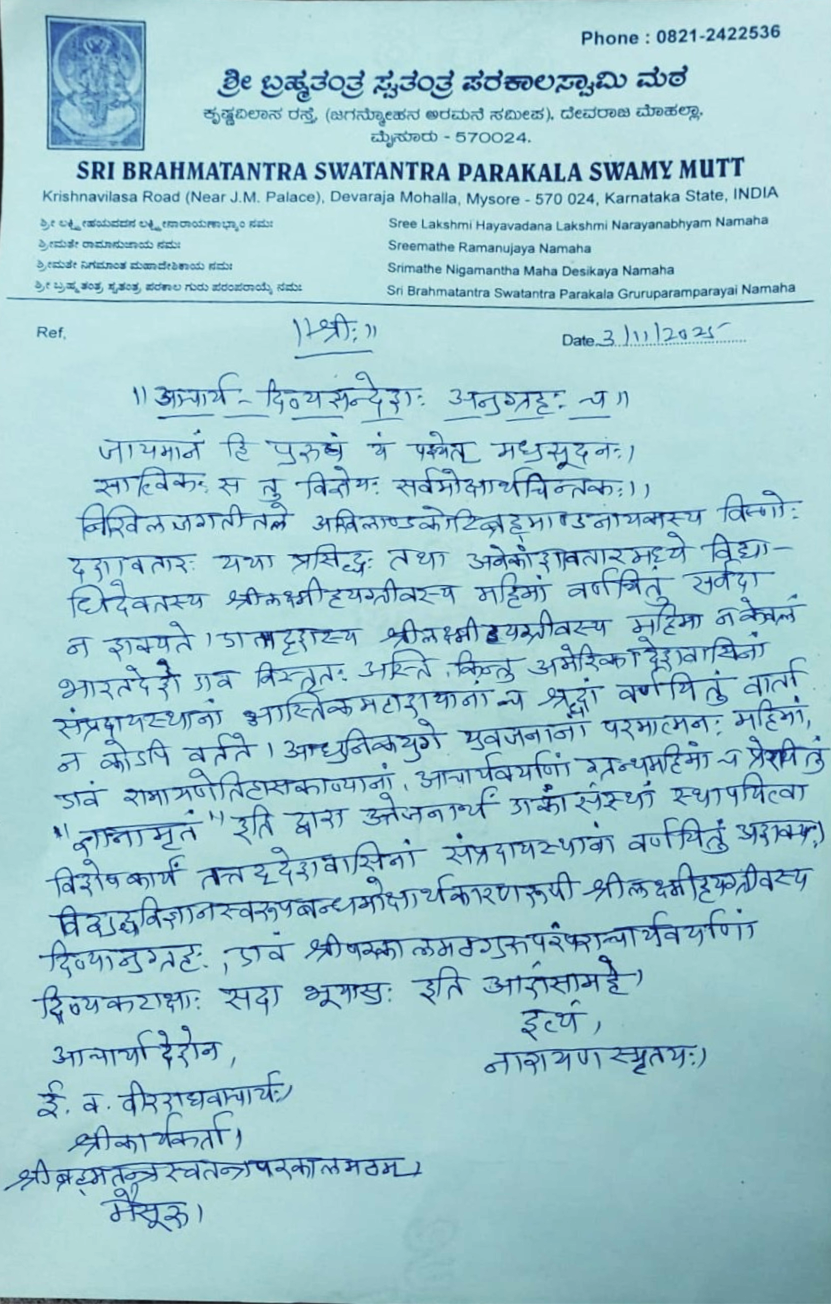 Phone : 0821-2422536
ಶ್ರೀ ಬ್ರಹ್ಮತಂತ್ರ ಸ್ವತಂತ್ರ ಪರಕಾಲಸ್ವಾಮಿ ಮಠ
ಕೃಷ್ಣವಿಲಾಸ ರಸ್ತೆ, (ಜಗನ್ಮೋಹನ ಅರಮನೆ ಸಮೀಪ), ದೇವರಾಜ ಮೊಹಲ್ಲಾ,
ಮೈಸೂರು - 570024.
SRI BRAHMATANTRA SWATANTRA PARAKALA SWAMY MUTT
Krishnavilasa Road (Near J.M. Palace), Devaraja Mohalla, Mysore - 570 024, Karnataka State, INDIA
ಶ್ರೀ ಲಕ್ಷ್ಮೀಹಯವದನ ಲಕ್ಷ್ಮೀನಾರಾಯಣಾಭ್ಯಾಂ ನಮಃ Sree Lakshmi Hayavadana Lakshmi Narayanabhyam Namaha
ಶ್ರೀಮತೇ ರಾಮಾನುಜಾಯ ನಮಃ Sreemathe Ramanujaya Namaha
ಶ್ರೀಮತೇ ನಿಗಮಾಂತ ಮಹಾದೇಶಿಕಾಯ ನಮಃ Srimathe Nigamantha Maha Desikaya Namaha
ಶ್ರೀ ಬ್ರಹ್ಮತಂತ್ರ ಸ್ವತಂತ್ರ ಪರಕಾಲ ಗುರು ಪರಂಪರಾಯೈ ನಮಃ Sri Brahmatantra Swatantra Parakala Gruruparamparayai Namaha
Ref, ॥श्रीः॥ Date 3/11/2025
॥आचार्य - दिव्यसन्देशः अनुग्रहः च॥
जायमानं हि पुरुषं यं पश्येत् मधुसूदनः।
सात्विकः स तु विज्ञेयः सर्वमोक्षार्थचिन्तकः॥
निखिलजगतीतले अखिलाण्डकोटिब्रह्माण्डनायकस्य विष्णोः
दशावतारः यथा प्रसिद्धः तथा अनेकांशावतारमध्ये विद्या-
धिदेवतस्य श्रीलक्ष्मीहयग्रीवस्य महिमां वर्णयितुं सर्वदा
न शक्यते। एतादृशस्य श्रीलक्ष्मीहयग्रीवस्य महिमा न केवलं
भारतदेशे एव विस्तृतः अस्ति, किन्तु अमेरिकादेशवासिनां
संप्रदायस्थानां आस्तिकमहाशयानां च श्रद्धां वर्णयितुं वार्ता
न कोऽपि वर्तते। आधुनिकयुगे युवजनानां परमात्मनः महिमां,
एवं रामायणेतिहासकाव्यानां, आचार्यवर्याणां ग्रन्थमहिमां च प्रेरयितुं
"ज्ञानामृतं" इति द्वारा उत्तेजनार्थं एकां संस्थां स्थापयित्वा
विशेषकार्यं तत्तद्देशवासिनां संप्रदायस्थानां वर्णयितुं अशक्यः।
विशुद्धविज्ञानस्वरूपबन्धमोक्षार्थकारणरूपी श्रीलक्ष्मीहयग्रीवस्य
दिव्यानुग्रहः, एवं श्रीपरकालमठगुरुपरंपराचार्यवर्याणां
दिव्यकटाक्षाः सदा भूयासुः इति आशंसामहे।
इत्थं,
आचार्यादेशेन, नारायणस्मृतयः।
ई. व. वीरराघवाचार्यः।
श्रीकार्यकर्ता।
श्रीब्रह्मतन्त्रस्वतन्त्रपरकालमठम्।
मैसूरु।